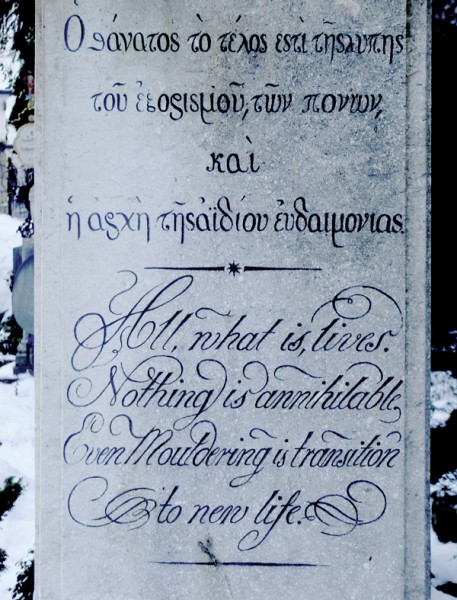 Ὁ θάνατος τὸ τέλος ἐστὶ τῆς λυπης
τοῦ ἐξορισμοῦ, τῶν πονων,
καὶ
ἡ ἀρχὴ τῆς ἀϊδίου ἐυδαιμονιας.
All, what is, lives.
Nothing is annihilable,
Even Mouldering is transition
to new life.